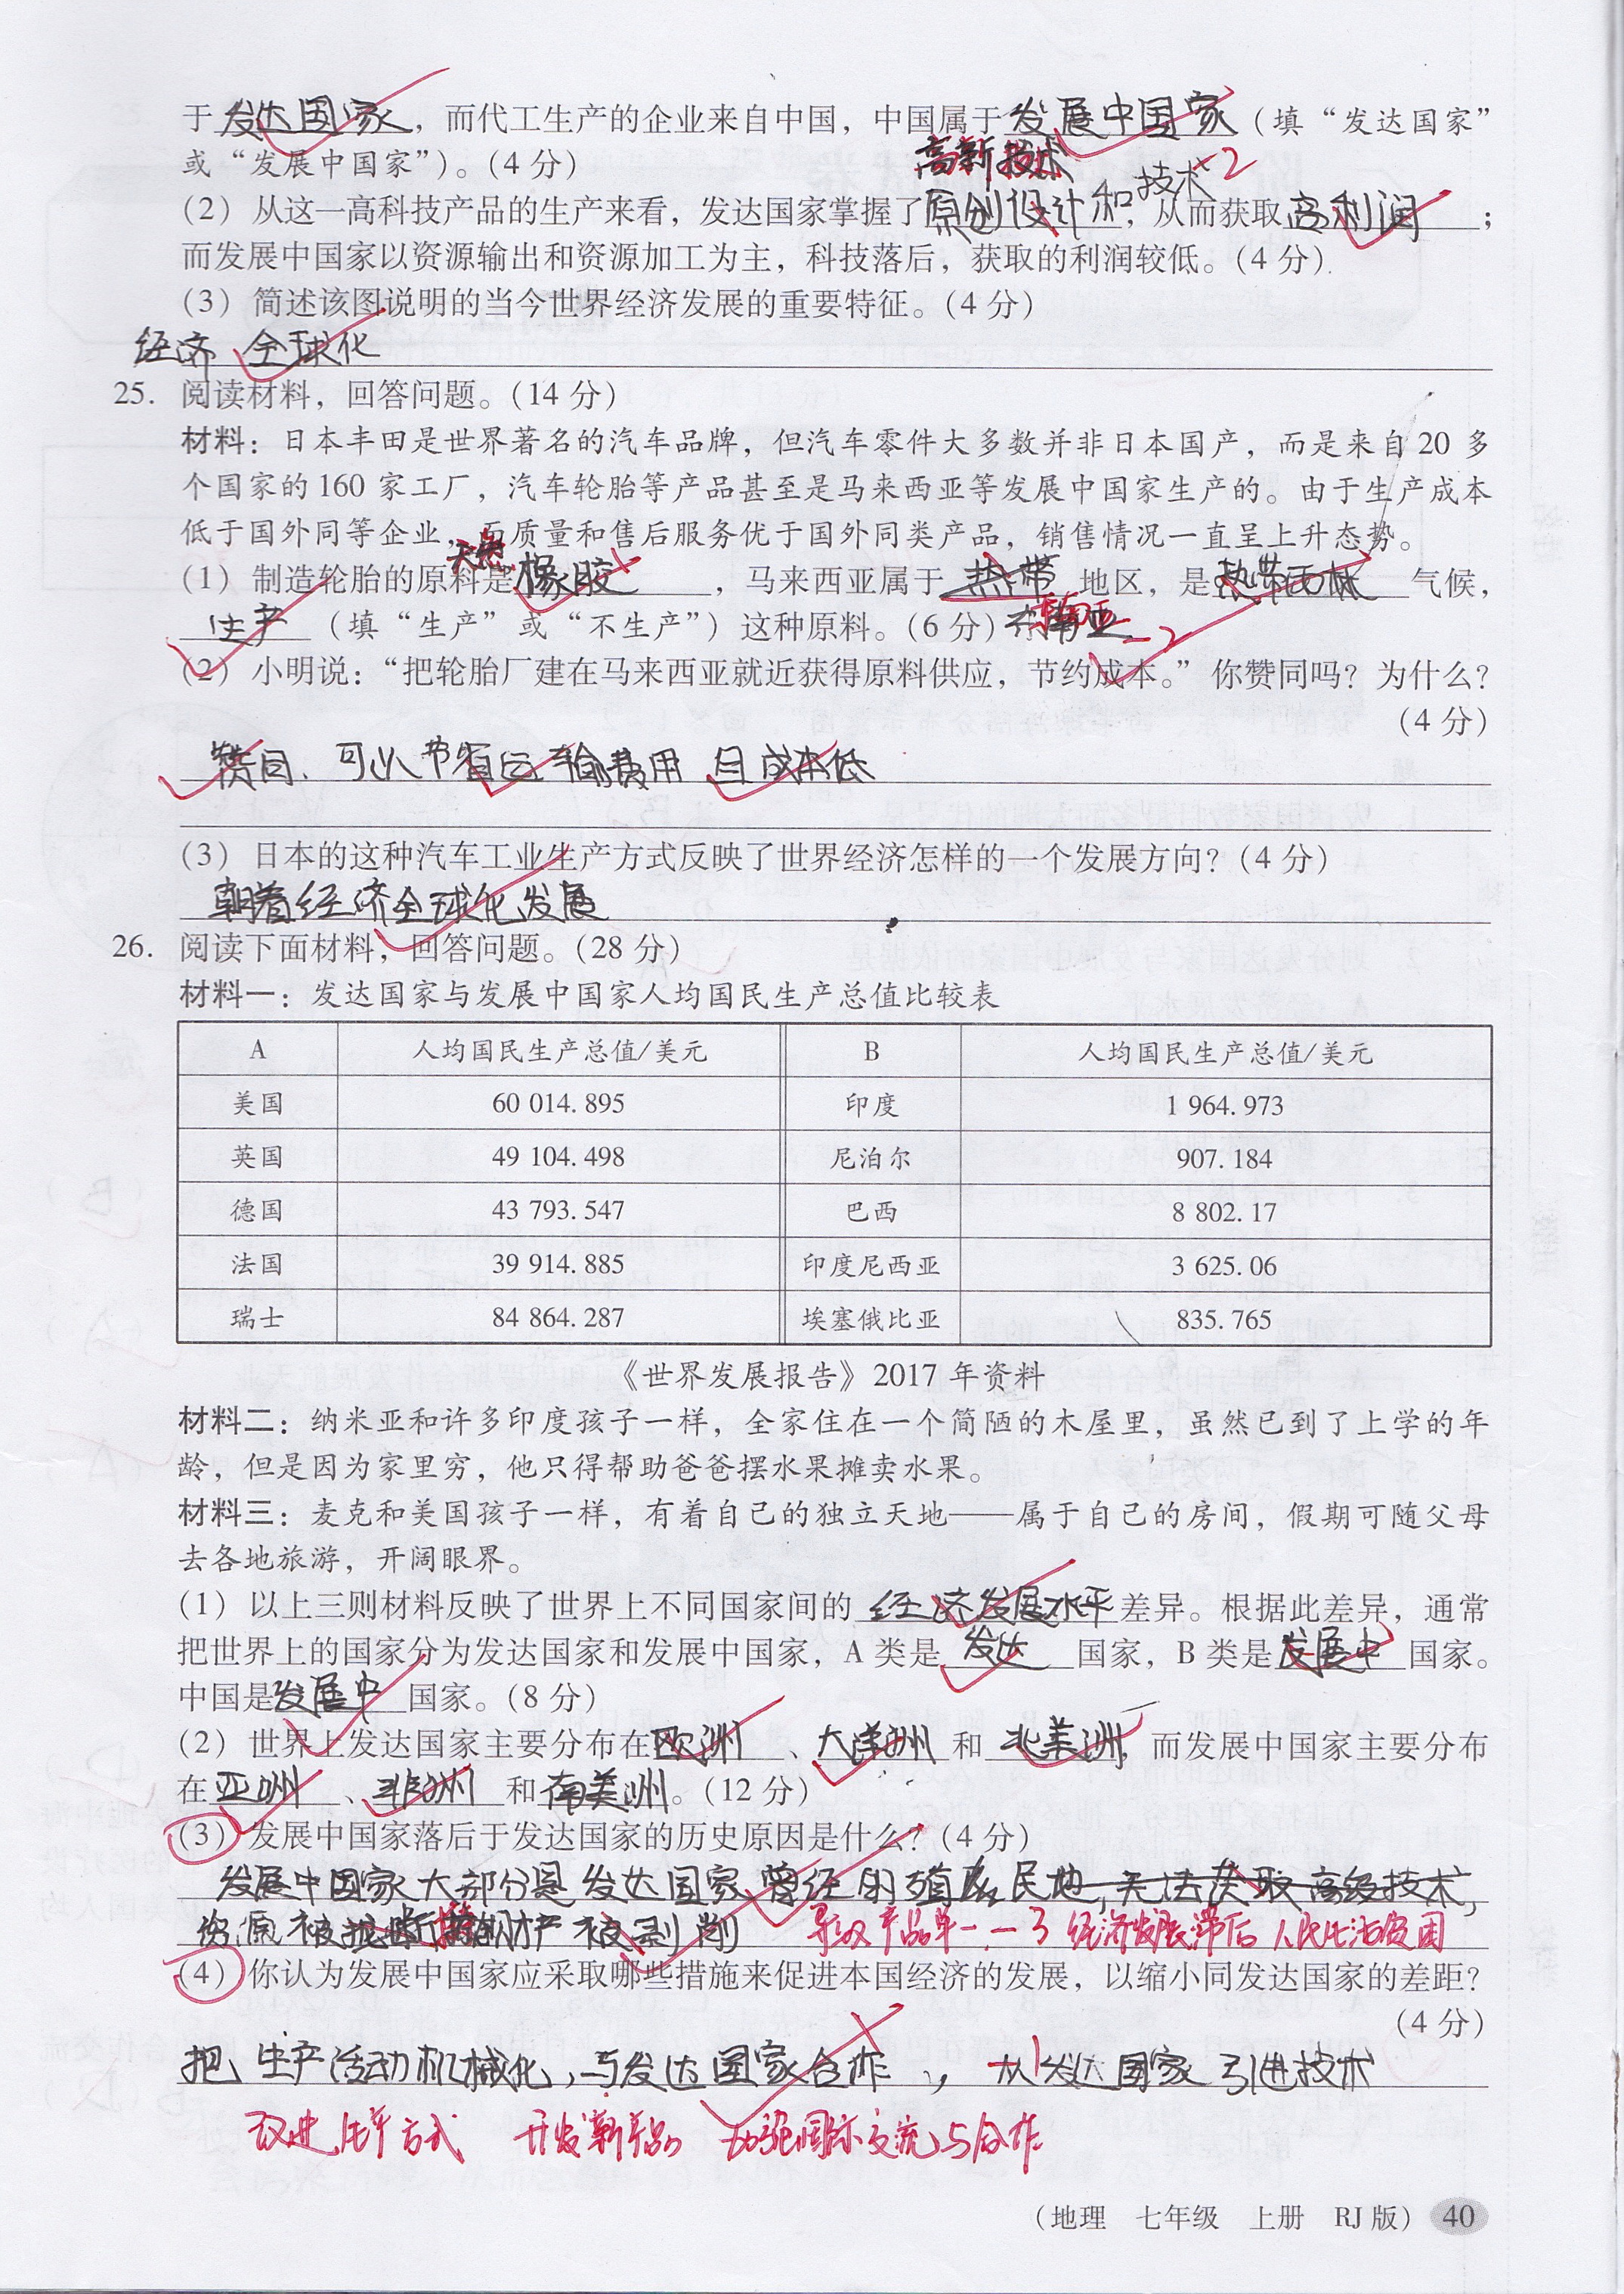 于发达国家，而代工生产的企业来自中国，中国属于发展中国家（填“发达国家”
或“发展中国家”）。（4 分）
高新技术
（2）从这一高科技产品的生产来看，发达国家掌握了原创设计和技术，从而获取高利润；
-2
而发展中国家以资源输出和资源加工为主，科技落后，获取的利润较低。（4 分）
（3）简述该图说明的当今世界经济发展的重要特征。（4 分）
经济 全球化
25. 阅读材料，回答问题。（14 分）
材料：日本丰田是世界著名的汽车品牌，但汽车零件大多数并非日本国产，而是来自 20 多
个国家的 160 家工厂，汽车轮胎等产品甚至是马来西亚等发展中国家生产的。由于生产成本
低于国外同等企业，而质量和售后服务优于国外同类产品，销售情况一直呈上升态势。
天然
（1）制造轮胎的原料是橡胶，马来西亚属于热带地区，是热带雨林气候，
生产（填“生产”或“不生产”）这种原料。（6 分）东南亚 -2
（2）小明说：“把轮胎厂建在马来西亚就近获得原料供应，节约成本。”你赞同吗？为什么？
（4 分）
赞同、可以节省运输费用 且成本低
（3）日本的这种汽车工业生产方式反映了世界经济怎样的一个发展方向？（4 分）
朝着经济全球化发展
26. 阅读下面材料，回答问题。（28 分）
材料一：发达国家与发展中国家人均国民生产总值比较表
A 人均国民生产总值/美元 B 人均国民生产总值/美元
美国 60 014.895 印度 1 964.973
英国 49 104.498 尼泊尔 907.184
德国 43 793.547 巴西 8 802.17
法国 39 914.885 印度尼西亚 3 625.06
瑞士 84 864.287 埃塞俄比亚 835.765
《世界发展报告》2017 年资料
材料二：纳米亚和许多印度孩子一样，全家住在一个简陋的木屋里，虽然已到了上学的年
龄，但是因为家里穷，他只得帮助爸爸摆水果摊卖水果。
材料三：麦克和美国孩子一样，有着自己的独立天地——属于自己的房间，假期可随父母
去各地旅游，开阔眼界。
（1）以上三则材料反映了世界上不同国家间的经济发展水平差异。根据此差异，通常
把世界上的国家分为发达国家和发展中国家，A 类是发达国家，B 类是发展中国家。
中国是发展中国家。（8 分）
（2）世界上发达国家主要分布在欧洲、大洋洲和北美洲，而发展中国家主要分布
在亚洲、非洲和南美洲。（12 分）
（3）发展中国家落后于发达国家的历史原因是什么？（4 分）
发展中国家大部分是发达国家曾经的殖民地，无法获取高级技术，
资源被垄断 财产被剥削 导致产品单一 经济发展滞后 人民生活贫困
（4）你认为发展中国家应采取哪些措施来促进本国经济的发展，以缩小同发达国家的差距？
（4 分）
把生产活动机械化，与发达国家合作，从发达国家引进技术
改进生产方式 开发新产品 加强国际交流与合作
（地理 七年级 上册 RJ 版） 40